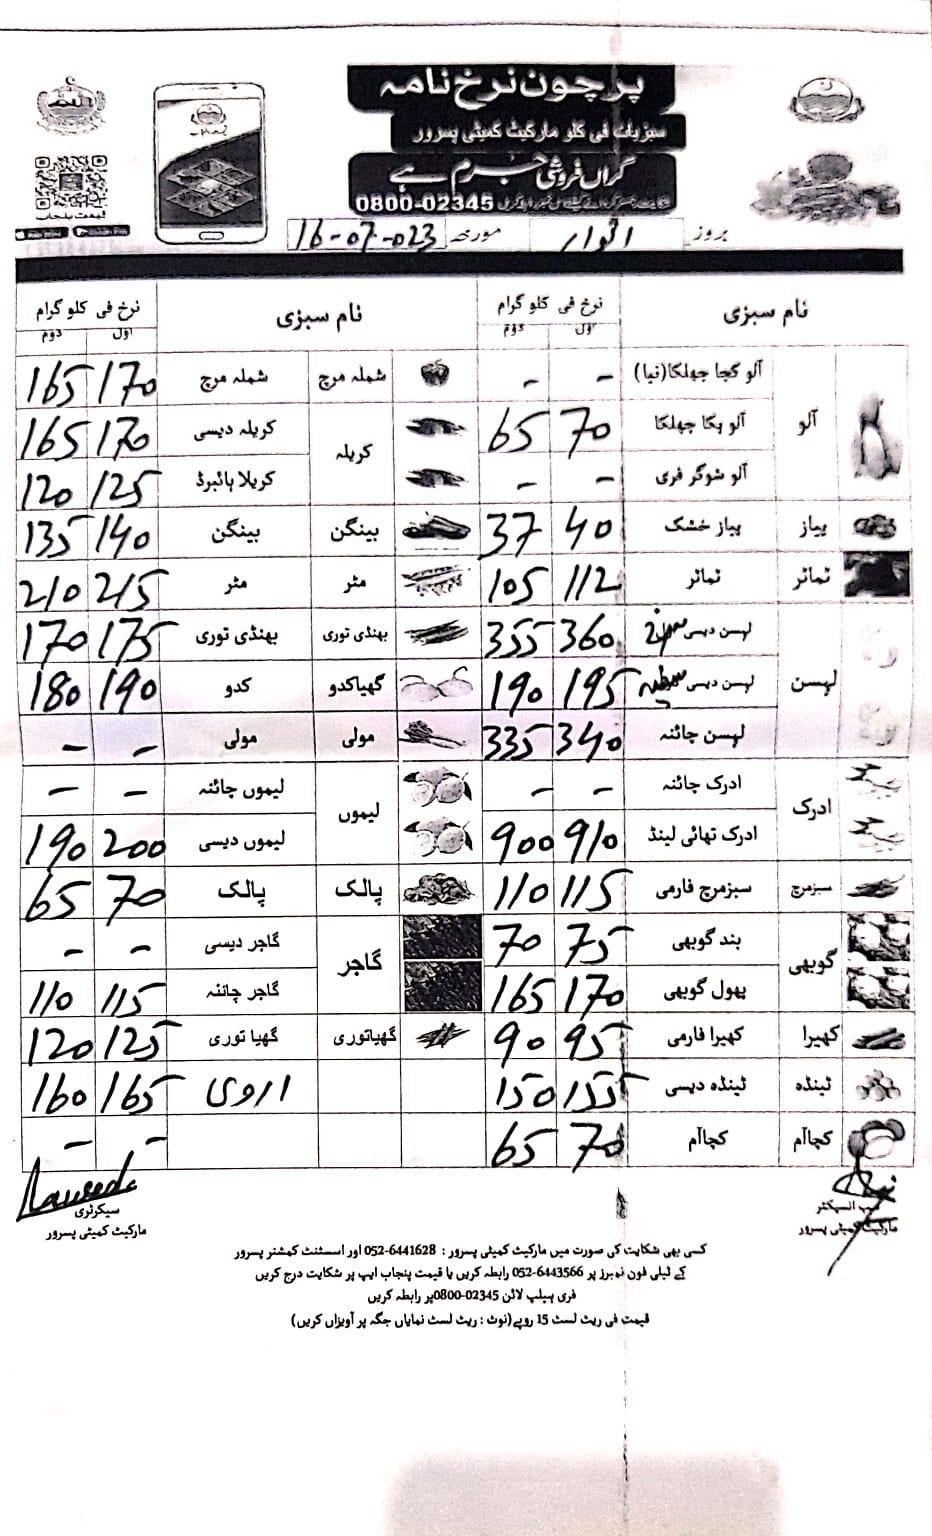 پرچون نرخ نامہ
سبزیات فی کلو مارکیٹ کمیٹی پسرور
گراں فروشی جرم ہے
0800-02345
قیمت پنجاب
بروز اتوار مورخہ 16-07-023
نام سبزی نرخ فی کلو گرام نام سبزی نرخ فی کلو گرام
اول دوم اول دوم
آلو آلو کچا چھلکا(نیا) - - شملہ مرچ شملہ مرچ 170 165
آلو پکا چھلکا 70 65 کریلہ کریلہ دیسی 170 165
آلو شوگر فری - - کریلا ہائبرڈ 125 120
پیاز پیاز خشک 40 37 بینگن بینگن 140 135
ٹماٹر ٹماٹر 112 105 مٹر مٹر 215 210
لہسن لہسن دیسی 360 355 بھنڈی توری بھنڈی توری 175 170
لہسن دیسی سفید 195 190 گھیاکدو کدو 190 180
لہسن چائنہ 340 335 مولی مولی - -
ادرک ادرک چائنہ - - لیموں لیموں چائنہ - -
ادرک تھائی لینڈ 910 900 لیموں دیسی 200 190
سبزمرچ سبزمرچ فارمی 115 110 پالک پالک 70 65
گوبھی بند گوبھی 75 70 گاجر گاجر دیسی - -
پھول گوبھی 170 165 گاجر چائنہ 115 110
کھیرا کھیرا فارمی 95 90 گھیاتوری گھیا توری 125 120
ٹینڈہ ٹینڈہ دیسی 155 150 اروی 165 160
کچاآم کچاآم 70 65 - -
سب انسپکٹر
مارکیٹ کمیٹی پسرور
سیکرٹری
مارکیٹ کمیٹی پسرور
کسی بھی شکایت کی صورت میں مارکیٹ کمیٹی پسرور : 052-6441628 اور اسسٹنٹ کمشنر پسرور
کے ٹیلی فون نمبرز پر 052-6443566 رابطہ کریں یا قیمت پنجاب ایپ پر شکایت درج کریں
فری ہیلپ لائن 02345-0800پر رابطہ کریں
قیمت فی ریٹ لسٹ 15 روپے(نوٹ : ریٹ لسٹ نمایاں جگہ پر آویزاں کریں)